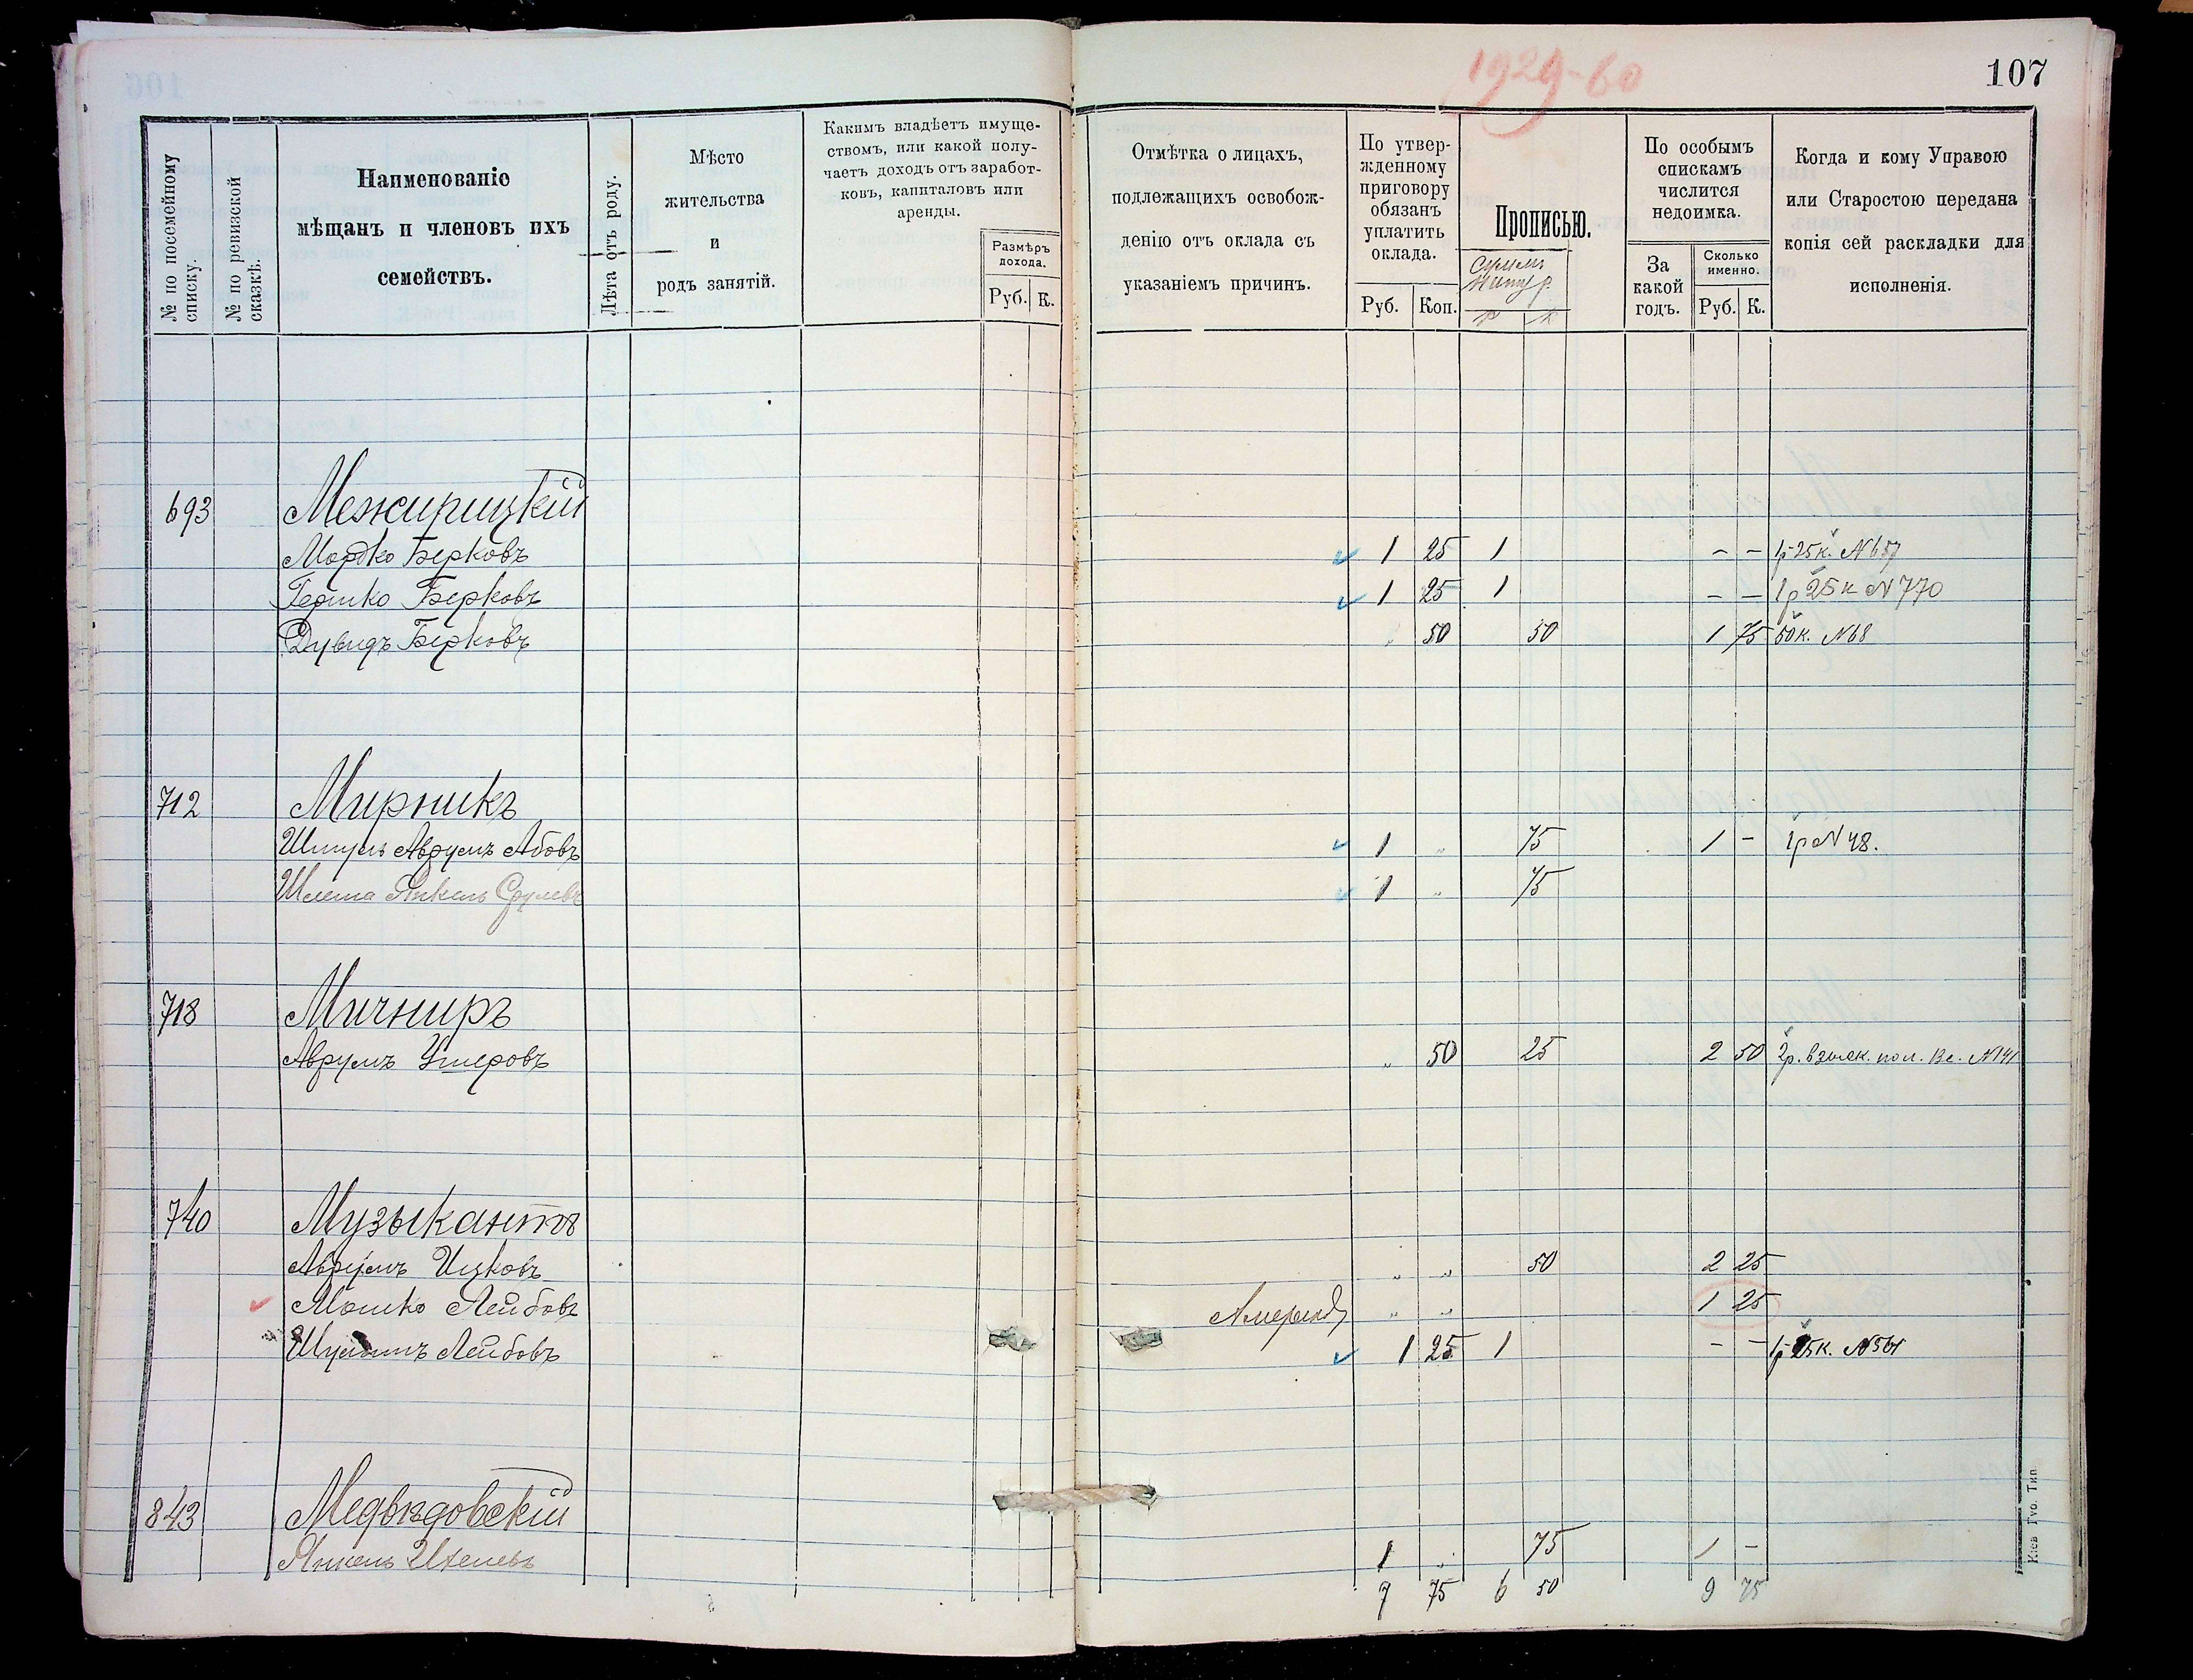 1929-60
107
№ по посемейному списку.
№ по ревизской сказкѣ.
Наименованіе
мѣщанъ и членовъ ихъ
семействъ.
Лѣта отъ роду.
Мѣсто
жительства
и
родъ занятій.
Какимъ владѣетъ имуще-
ствомъ, или какой полу-
чаетъ доходъ отъ заработ-
ковъ, капиталовъ или
аренды.
Размѣръ
дохода.
Руб. К.
Отмѣтка о лицахъ,
подлежащихъ освобож-
денію отъ оклада съ
указаніемъ причинъ.
По утвер-
жденному
приговору
обязанъ
уплатить
оклада.
Руб. Коп.
Прописью.
р к
По особымъ
спискамъ
числится
недоимка.
За
какой
годъ.
Сколько
именно.
Руб. К.
Когда и кому Управою
или Старостою передана
копія сей раскладки для
исполненія.
693 Межирицкій
Мордко Берковъ 1 25 1 - - 1р 25к. №657
Гершко Берковъ 1 25 1 - - 1р 25к №770
Дувидъ Берковъ " 50 50 1 75 50к. №68
712 Мирникъ
Шмуль Аврумъ Абовъ 1 " 75 1 - 1р №48.
Шлема Янкель Срулевъ 1 " 75
718 Мичниръ
Аврумъ Ушеровъ " 50 25 2 50 2р. взыск. пол. №141
740 Музыкантъ
Аврумъ Ицковъ " " 50 2 25
Мошко Лейбовъ " " 1 25
Лейбовъ 1 25 1 - - 1р 25к. №561
843 Медвѣдовскій
Янкель 1 " 75 1 -
7 75 6 50 9 75
Кіев Губ. Тип.